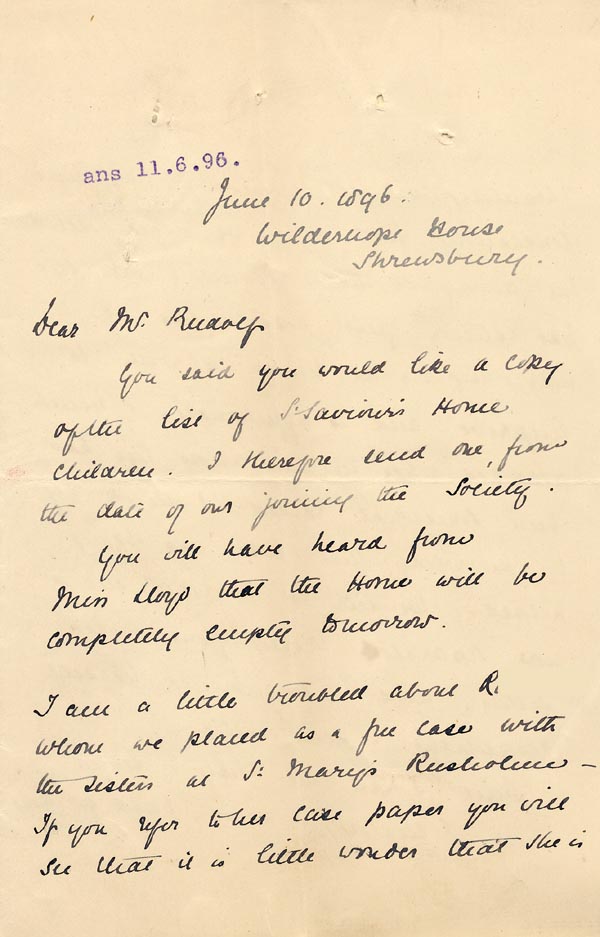 ans 11.6.96.
June 10. 1896.
Wilderhope House
Shrewsbury.
Dear Mr. Rudolf
You said you would like a copy
of the list of St Saviour's Home
children. I therefore send one, from
the date of our joining the Society.
You will have heard from
Miss Lloyd that the Home will be
completely empty tomorrow.
I am a little troubled about R.
whom we placed as a free case with
the Sisters at St. Mary's Rusholme –
If you refer to her case paper you will
see that it is little wonder that she is